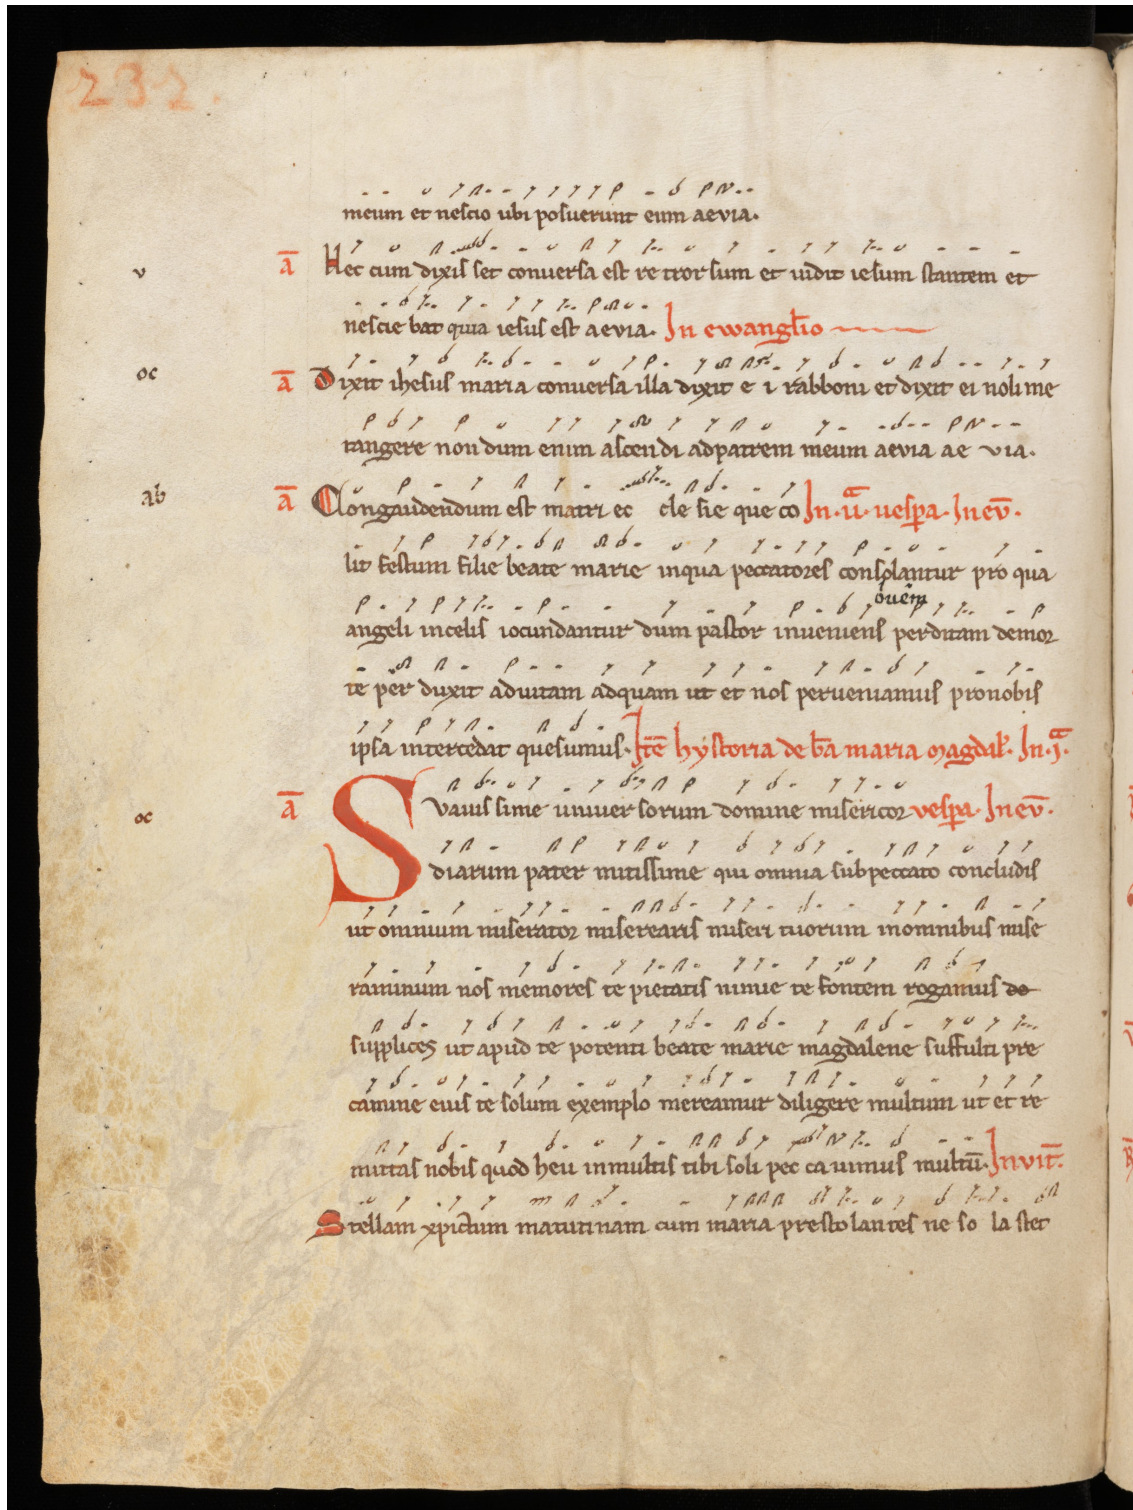 232.
meum et nescio ubi posuerunt eum aevia.
v ā Hec cum dixis set conversa est re tror sum et vidit iesum stantem et
nescie bat quia iesus est aevia. In ewangl̄io
oc ā Dixit ihesus maria conversa illa dixit e i rabboni et dixit ei noli me
tangere non dum enim ascen di ad patrem meum aevia ae via.
ab ā Congaudendum est matri ec cle sie que co In .ii.a vespa. In ev̄.
lit festum filie beate marie in qua peccatores consolantur pro qua
ovem
angeli in celis iocundantur dum pastor inveniens perditam demor
te per duxit ad vitam ad quam ut et nos perveniamus pro nobis
ipsa intercedat quesumus. Itē hystoria de b̄a maria magdal̄. In .j.a
oc ā Suavis sime univer sorum domine misericor vespa. In ev̄.
diarum pater mitissime qui omnia sub peccato concludis
ut omnium miserator miserearis miseri tuorum in omnibus mise
raminum nos memores te pietatis nimie te fontem rogamus do
supplices ut apud te potenti beate marie magdalene suffulti pre
camine eius te solum exemplo mereamur diligere multum ut et re
mittas nobis quod heu in multis tibi soli pec ca vimus multū. Invit̄.
Stellam xpictum matutinam cum maria prestolantes ne so la stet